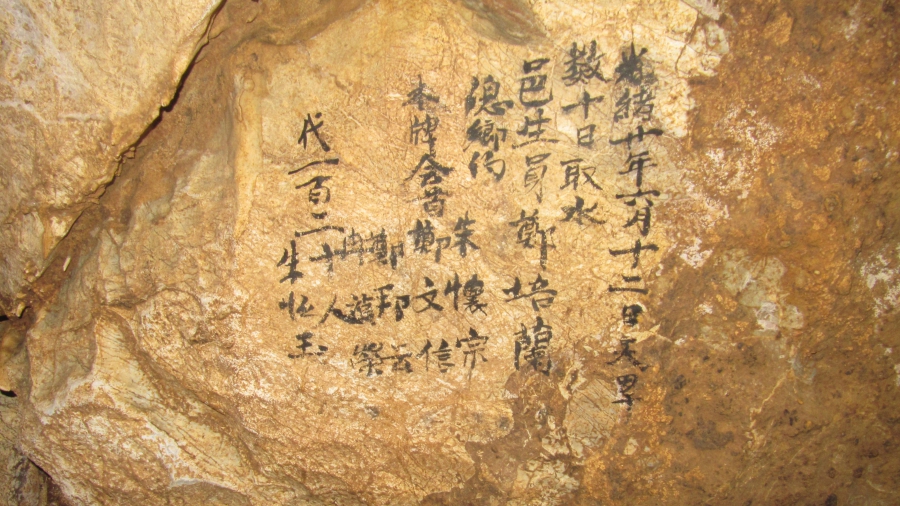 光緒廿年六月十二日天旱
数十日取水
邑生員鄭培蘭
總鄉约 朱懷宗
本牌会首鄭文信
鄭邦云
代一百二十人
朱怀玉